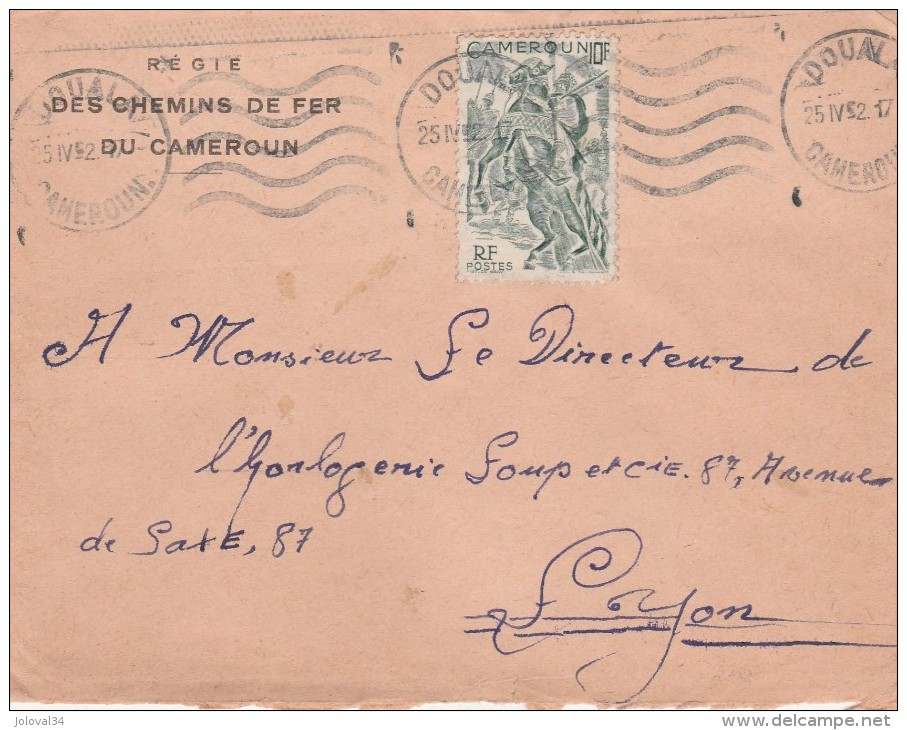 RÉGIE
DES CHEMINS DE FER
DU CAMEROUN
DOUALA
25 IV 52. 17
CAMEROUN
DOUALA
25 IV 52. 17
CAMEROUN
DOUALA
25 IV 52. 17
CAMEROUN
CAMEROUN 10F
RF
POSTES
A Monsieur Le Directeur de
l'Horlogerie Loup et CIE. 87, Avenue
de SaxE, 87
Lyon
joloval34
delcampe.net